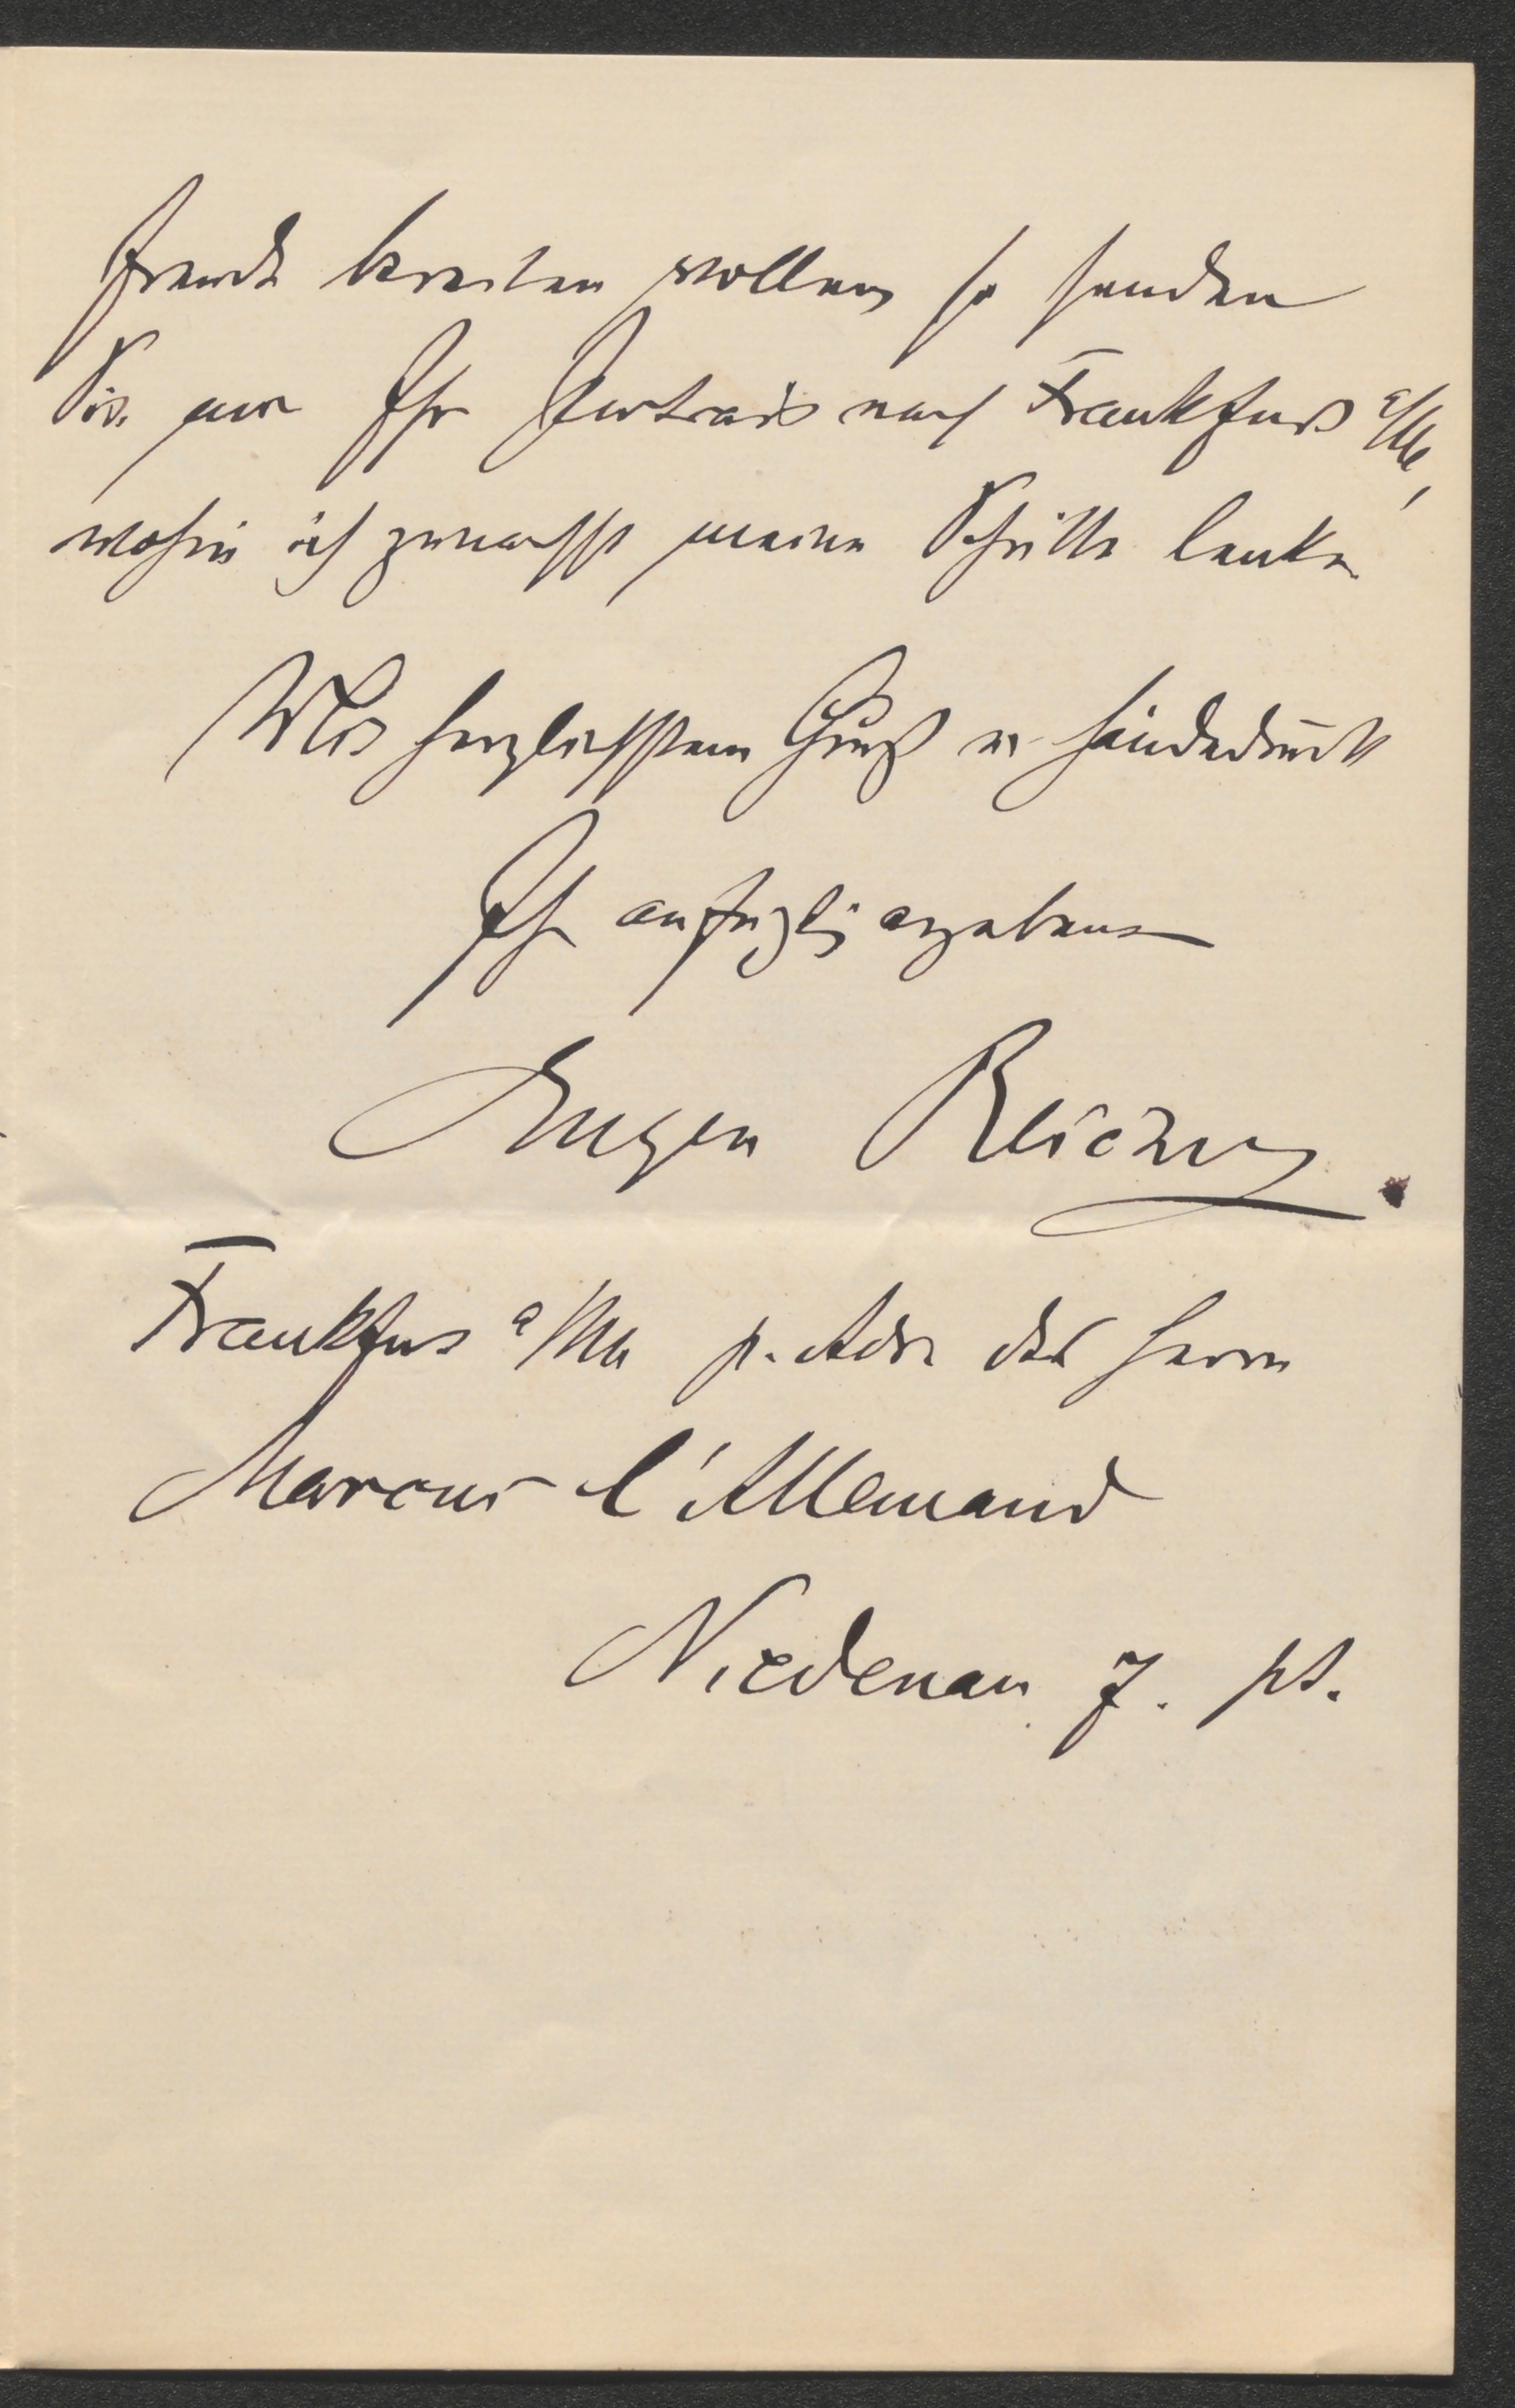 Freude bereiten wollen, so senden
Sie mir Ihr Portrait nach Frankfurt a/M,
wohin ich zunächst meine Schritte lenke
Mit herzlichstem Gruß u Händedruck
Ihr aufrichtig ergebener
Eugen
Frankfurt a/M p. Adr. des Herrn
Marcus l'Allemand
Niedenau 7. pt.